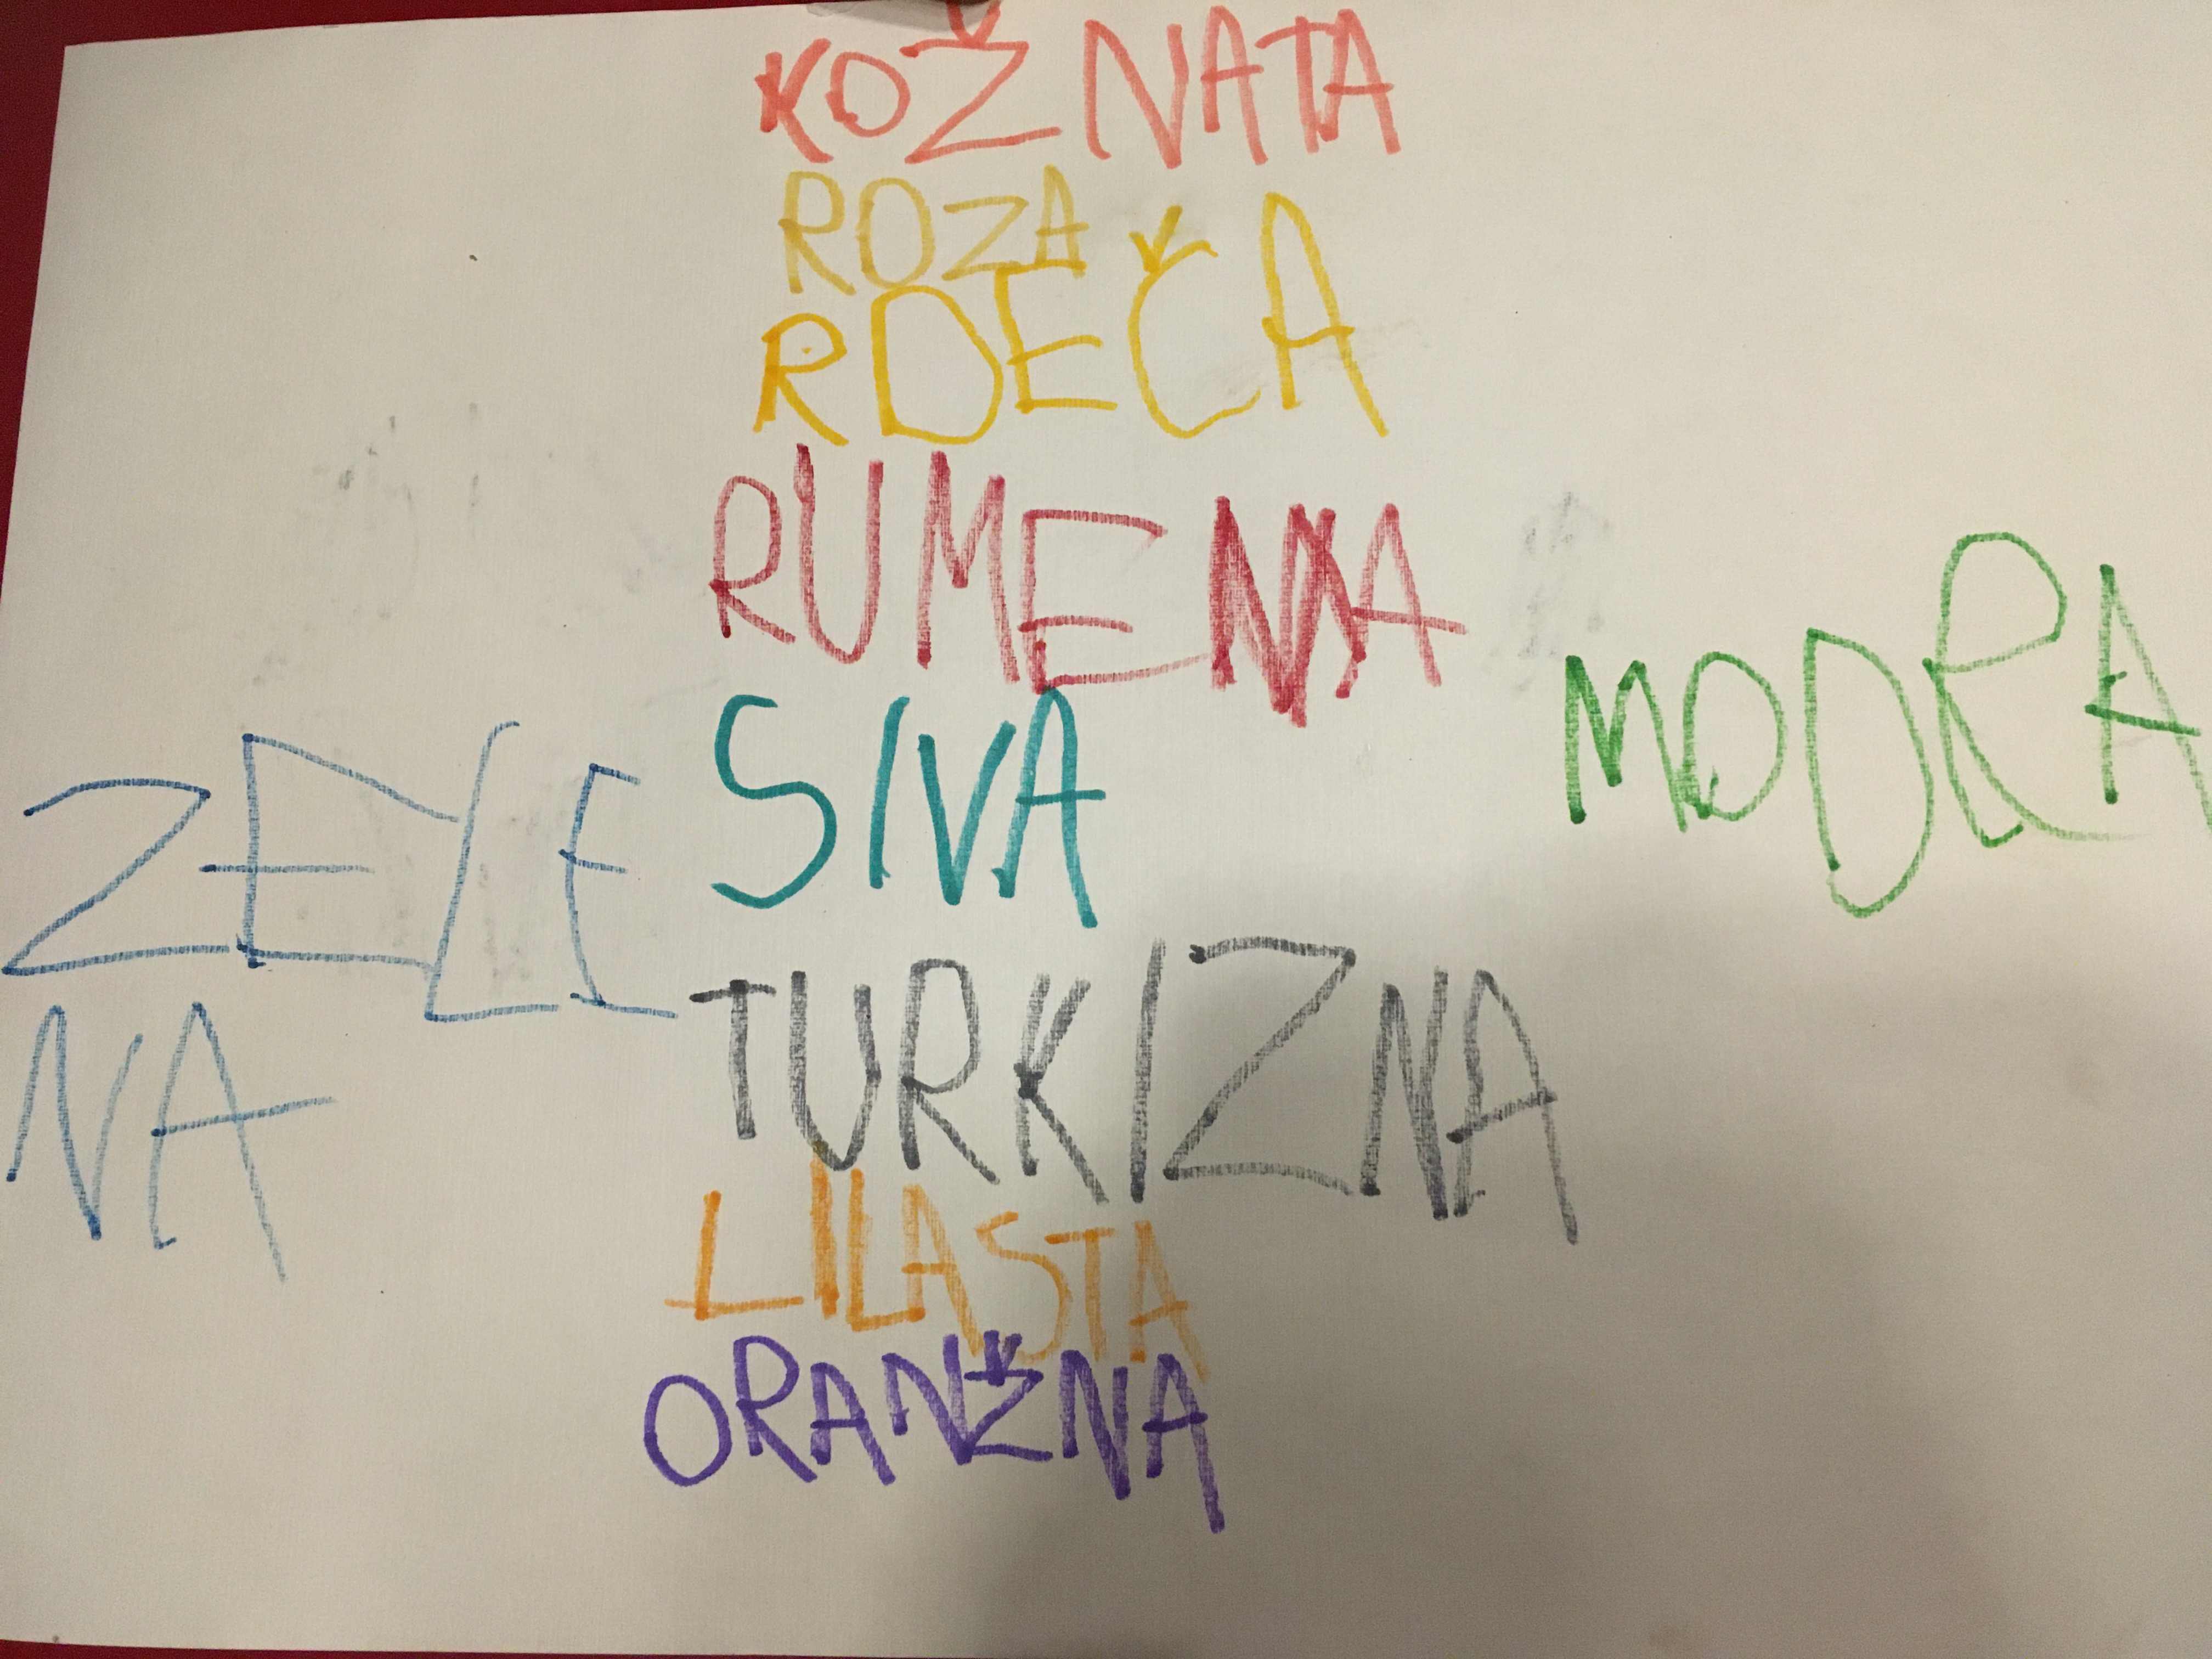 KOŽNATA
ROZA
RDEČA
RUMENA
SIVA
MODRA
ZELE
NA
TURKIZNA
LILASTA
ORANŽNA